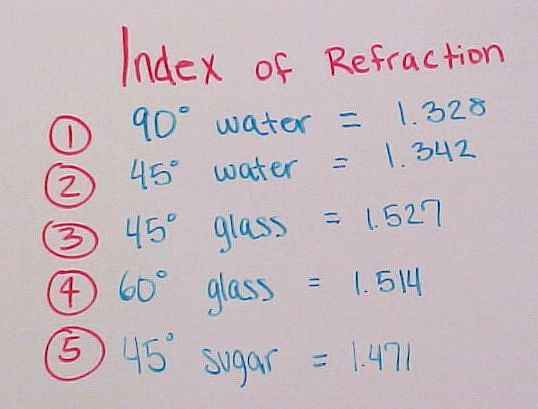 Index of Refraction
① 90° water = 1.328
② 45° water = 1.342
③ 45° glass = 1.527
④ 60° glass = 1.514
⑤ 45° sugar = 1.471